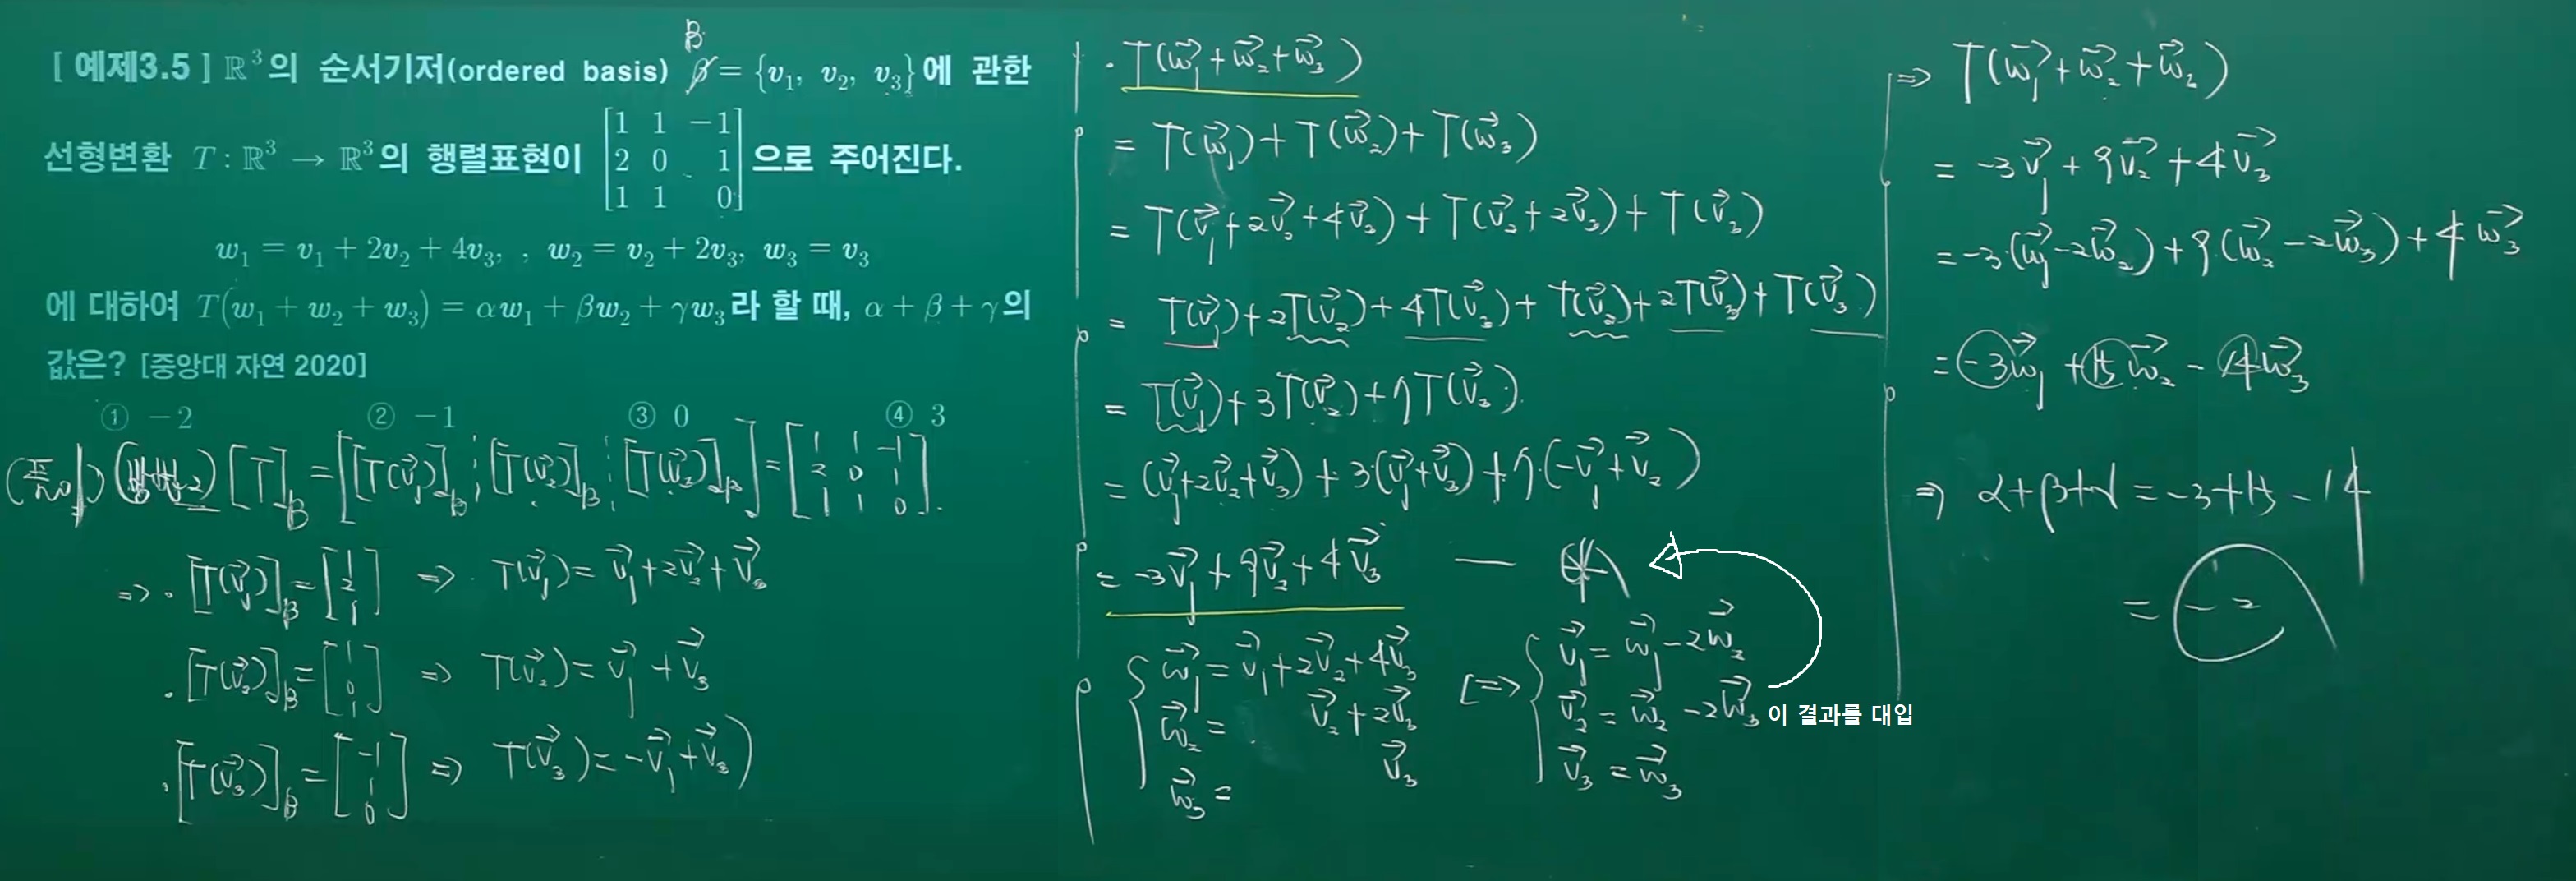 B
[ 예제3.5 ] ℝ³의 순서기저(ordered basis) β = {v₁, v₂, v₃}에 관한
선형변환 T : ℝ³ → ℝ³의 행렬표현이 [1 1 −1; 2 0 1; 1 1 0] 으로 주어진다.
w₁ = v₁ + 2v₂ + 4v₃, , w₂ = v₂ + 2v₃, w₃ = v₃
에 대하여 T(w₁ + w₂ + w₃) = αw₁ + βw₂ + γw₃라 할 때, α + β + γ의
값은? [중앙대 자연 2020]
① −2 ② −1 ③ 0 ④ 3
(풀이) [T]_B = [[T(v₁)]_B ⋮ [T(v₂)]_B ⋮ [T(v₃)]_B] = [1 1 −1; 2 0 1; 1 1 0]
⇒ · [T(v₁)]_B = [1; 2; 1] ⇒ T(v₁) = v₁ + 2v₂ + v₃
· [T(v₂)]_B = [1; 0; 1] ⇒ T(v₂) = v₁ + v₃
· [T(v₃)]_B = [−1; 1; 0] ⇒ T(v₃) = −v₁ + v₃)
· T(w₁ + w₂ + w₃)
= T(w₁) + T(w₂) + T(w₃)
= T(v₁ + 2v₂ + 4v₃) + T(v₂ + 2v₃) + T(v₃)
= T(v₁) + 2T(v₂) + 4T(v₃) + T(v₂) + 2T(v₃) + T(v₃)
= T(v₁) + 3T(v₂) + 7T(v₃)
= (v₁ + 2v₂ + v₃) + 3·(v₁ + v₃) + 7·(−v₁ + v₂)
= −3v₁ + 9v₂ + 4v₃ — ⊛
{ w₁ = v₁ + 2v₂ + 4v₃ [⇒ { v₁ = w₁ − 2w₂
w₂ = v₂ + 2v₃ v₂ = w₂ − 2w₃ 이 결과를 대입
w₃ = v₃ v₃ = w₃
⇒ T(w₁ + w₂ + w₂)
= −3v₁ + 9v₂ + 4v₃
= −3·(w₁ − 2w₂) + 9(w₂ − 2w₃) + 4w₃
= −3w₁ + 15w₂ − 14w₃
⇒ α + β + γ = −3 + 15 − 14
= −2